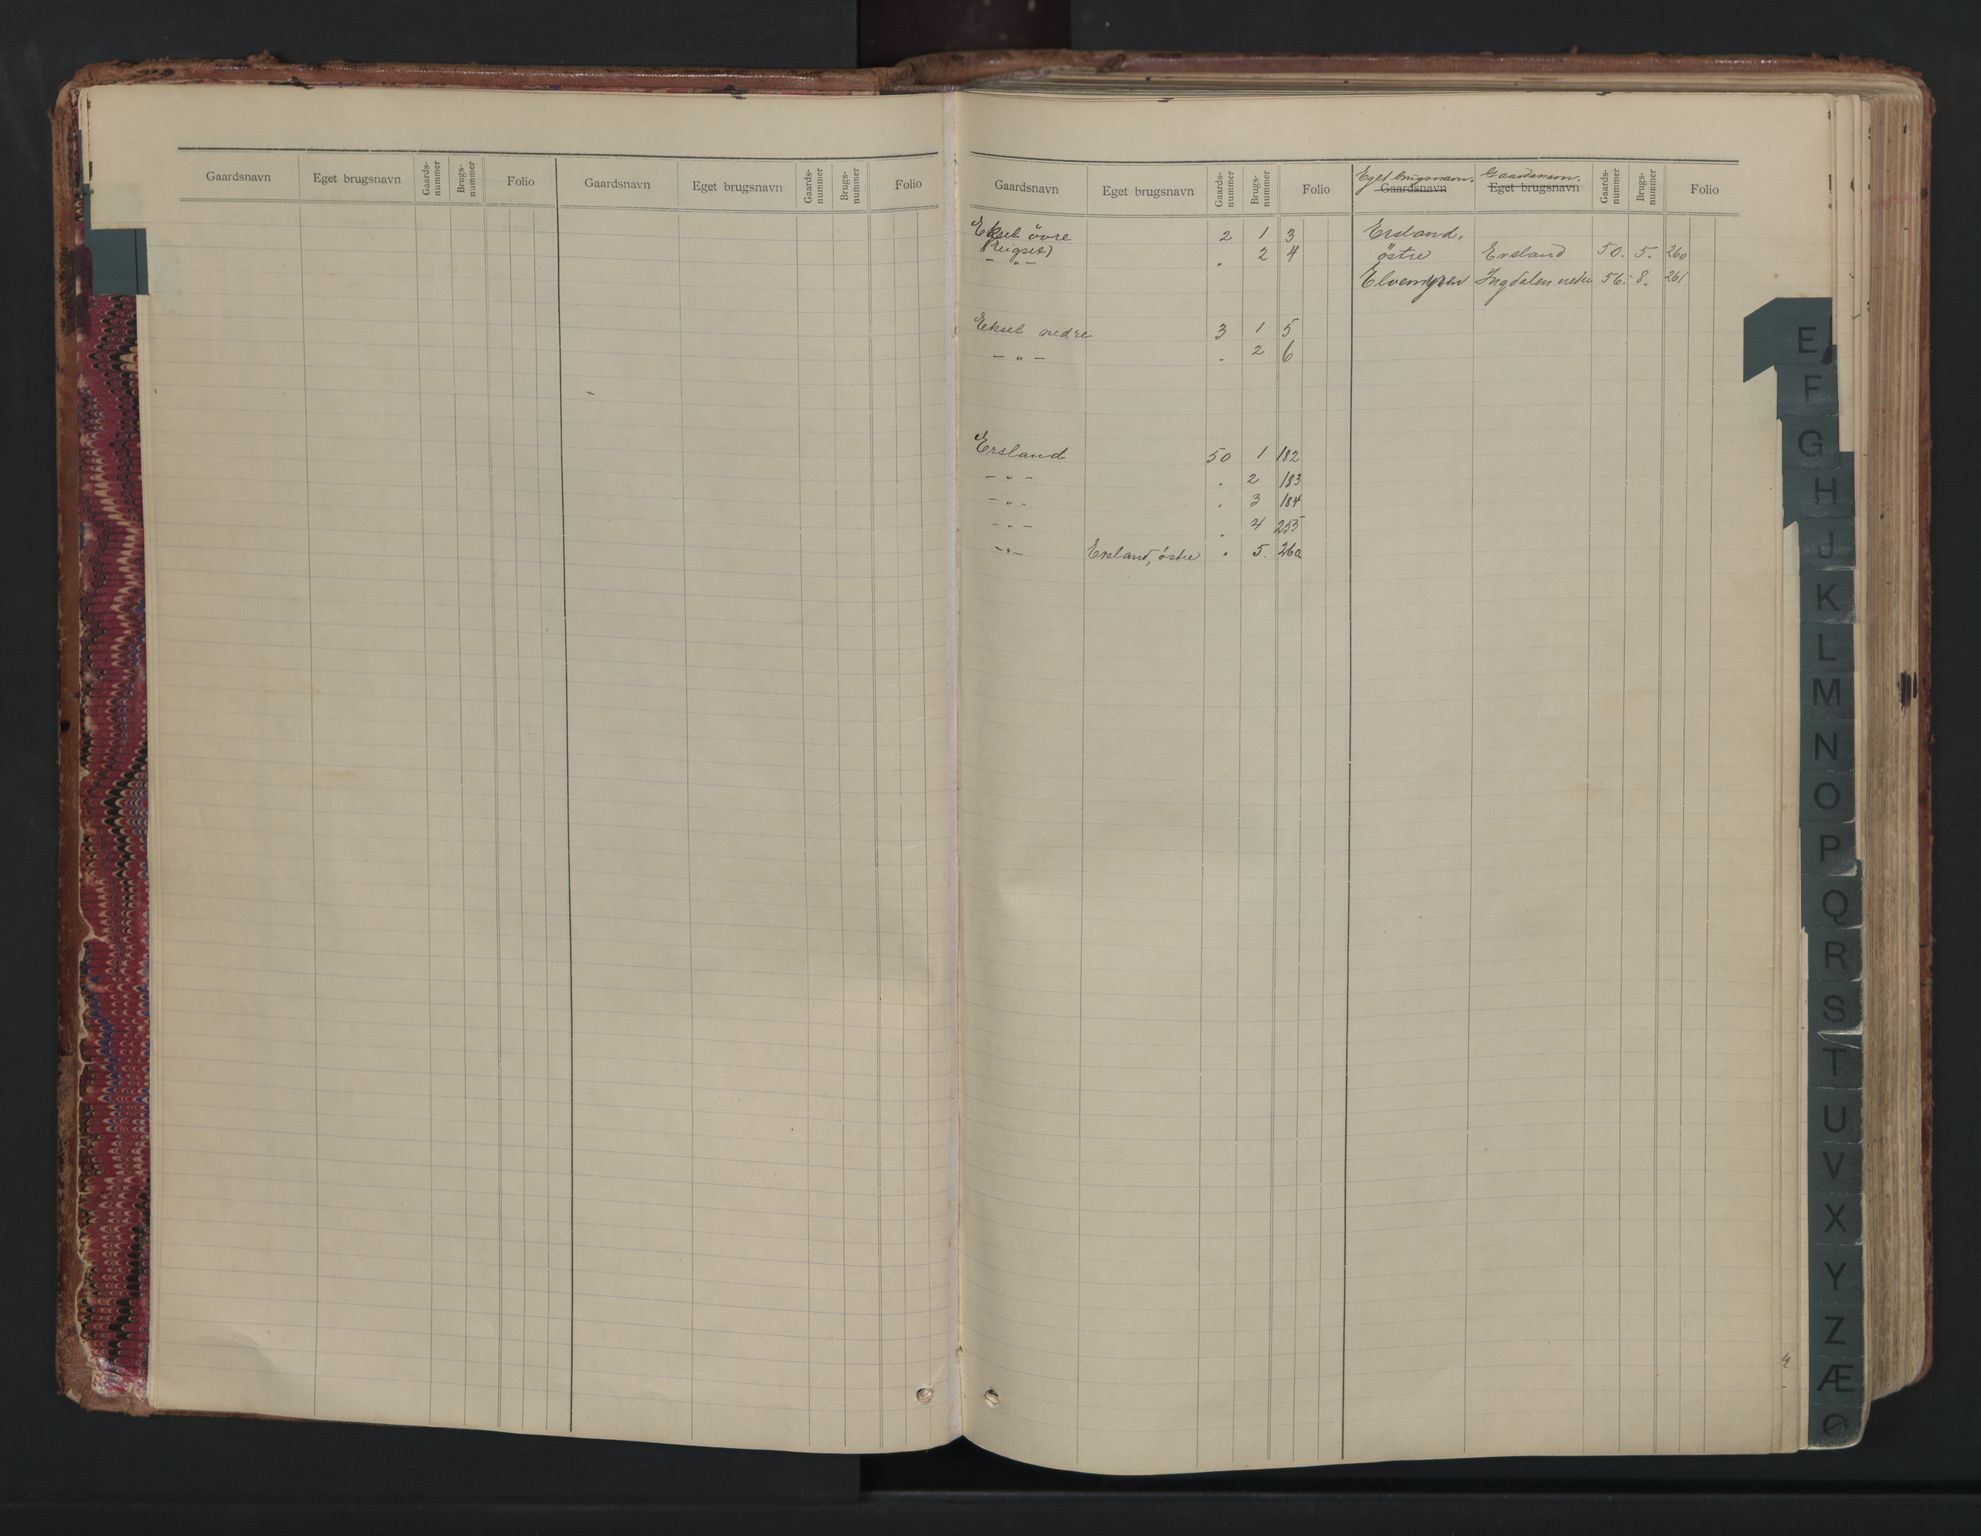 Gaardsnavn Eget brugsnavn Gaards-nummer Brugs-nummer Folio Gaardsnavn Eget brugsnavn Gaards-nummer Brugs-nummer Folio
Gaardsnavn Eget brugsnavn Gaards-nummer Brugs-nummer Folio
Ekset övre 2 1 3
- " - " 2 4
Ekset nedre 3 1 5
- " - " 2 6
Ersland 50 1 182
- " - " 2 183
- " - " 3 184
- " - " 4 255
- " - Ersland, östre " 5. 260
Eget brugsnavn. Gaardsnavn.
Gaardsnavn Eget brugsnavn Gaards-nummer Brugs-nummer Folio
Ersland,
östre Ersland 50. 5. 260
Ingdalen nedre 56. 8. 261
E
F
G
H
J
K
L
M
N
O
P
Q
R
S
T
U
V
X
Y
Z
Æ
Ø
4